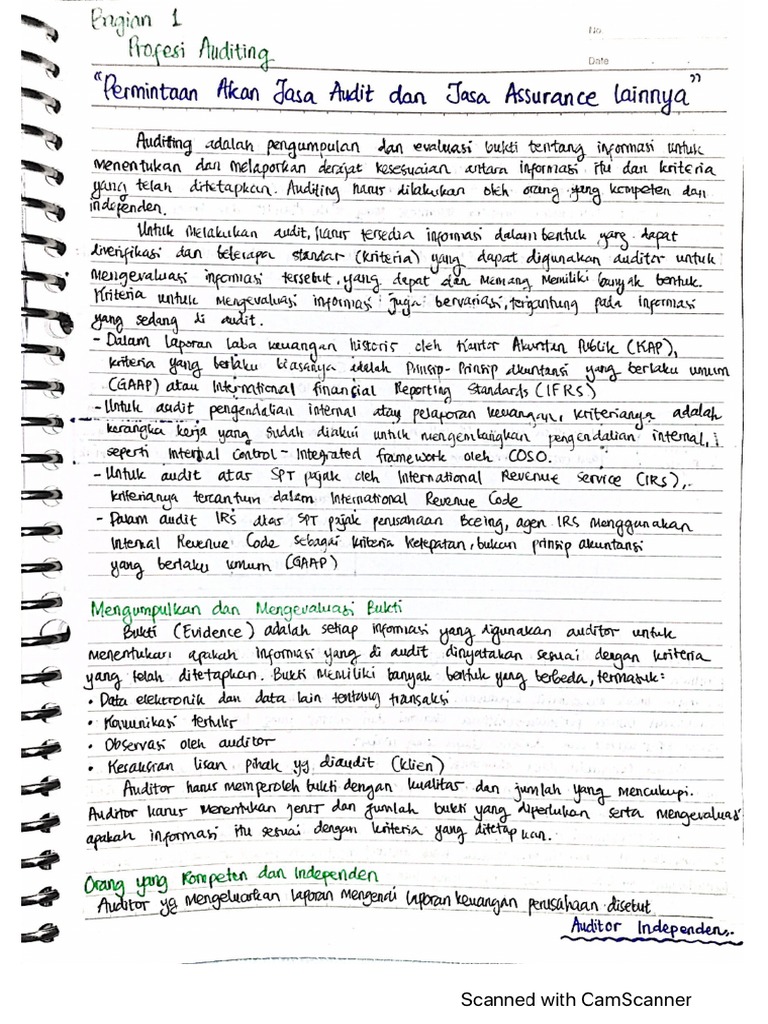 Bagian 1
Profesi Auditing
No.
Date
"Permintaan Akan Jasa Audit dan Jasa Assurance lainnya"
Auditing adalah pengumpulan dan evaluasi bukti tentang informasi untuk
menentukan dan melaporkan derajat kesesuaian antara informasi itu dan kriteria
yang telah ditetapkan. Auditing harus dilakukan oleh orang yang kompeten dan
independen.
Untuk melakukan audit, harus tersedia informasi dalam bentuk yang dapat
diverifikasi dan beberapa standar (kriteria) yang dapat digunakan auditor untuk
mengevaluasi informasi tersebut, yang dapat dan memang memiliki banyak bentuk.
Kriteria untuk mengevaluasi informasi juga bervariasi, tergantung pada informasi
yang sedang di audit.
- Dalam laporan laba keuangan historis oleh Kantor Akuntan Publik (KAP),
kriteria yang berlaku biasanya adalah Prinsip-Prinsip akuntansi yang berlaku umum
(GAAP) atau International financial Reporting Standards (IFRS)
- Untuk audit pengendalian internal atas pelaporan keuangan, kriterianya adalah
kerangka kerja yang sudah diakui untuk mengembangkan pengendalian internal,
seperti Internal Control - Integrated framework oleh COSO.
- Untuk audit atas SPT pajak oleh International Revenue Service (IRS),
kriterianya tercantum dalam International Revenue Code
- Dalam audit IRS atas SPT pajak perusahaan Boeing, agen IRS menggunakan
Internal Revenue Code sebagai kriteria ketepatan, bukan prinsip akuntansi
yang berlaku umum (GAAP)
Mengumpulkan dan Mengevaluasi Bukti
Bukti (Evidence) adalah setiap informasi yang digunakan auditor untuk
menentukan apakah informasi yang di audit dinyatakan sesuai dengan kriteria
yang telah ditetapkan. Bukti memiliki banyak bentuk yang berbeda, termasuk:
• Data elektronik dan data lain tentang transaksi
• Komunikasi tertulis
• Observasi oleh auditor
• Kesaksian lisan pihak yg diaudit (klien)
Auditor harus memperoleh bukti dengan kualitas dan jumlah yang mencukupi.
Auditor harus menentukan jenis dan jumlah bukti yang diperlukan serta mengevaluasi
apakah informasi itu sesuai dengan kriteria yang ditetapkan.
Orang yang Kompeten dan Independen
Auditor yg mengeluarkan laporan mengenai laporan keuangan perusahaan disebut
Auditor Independen.
Scanned with CamScanner